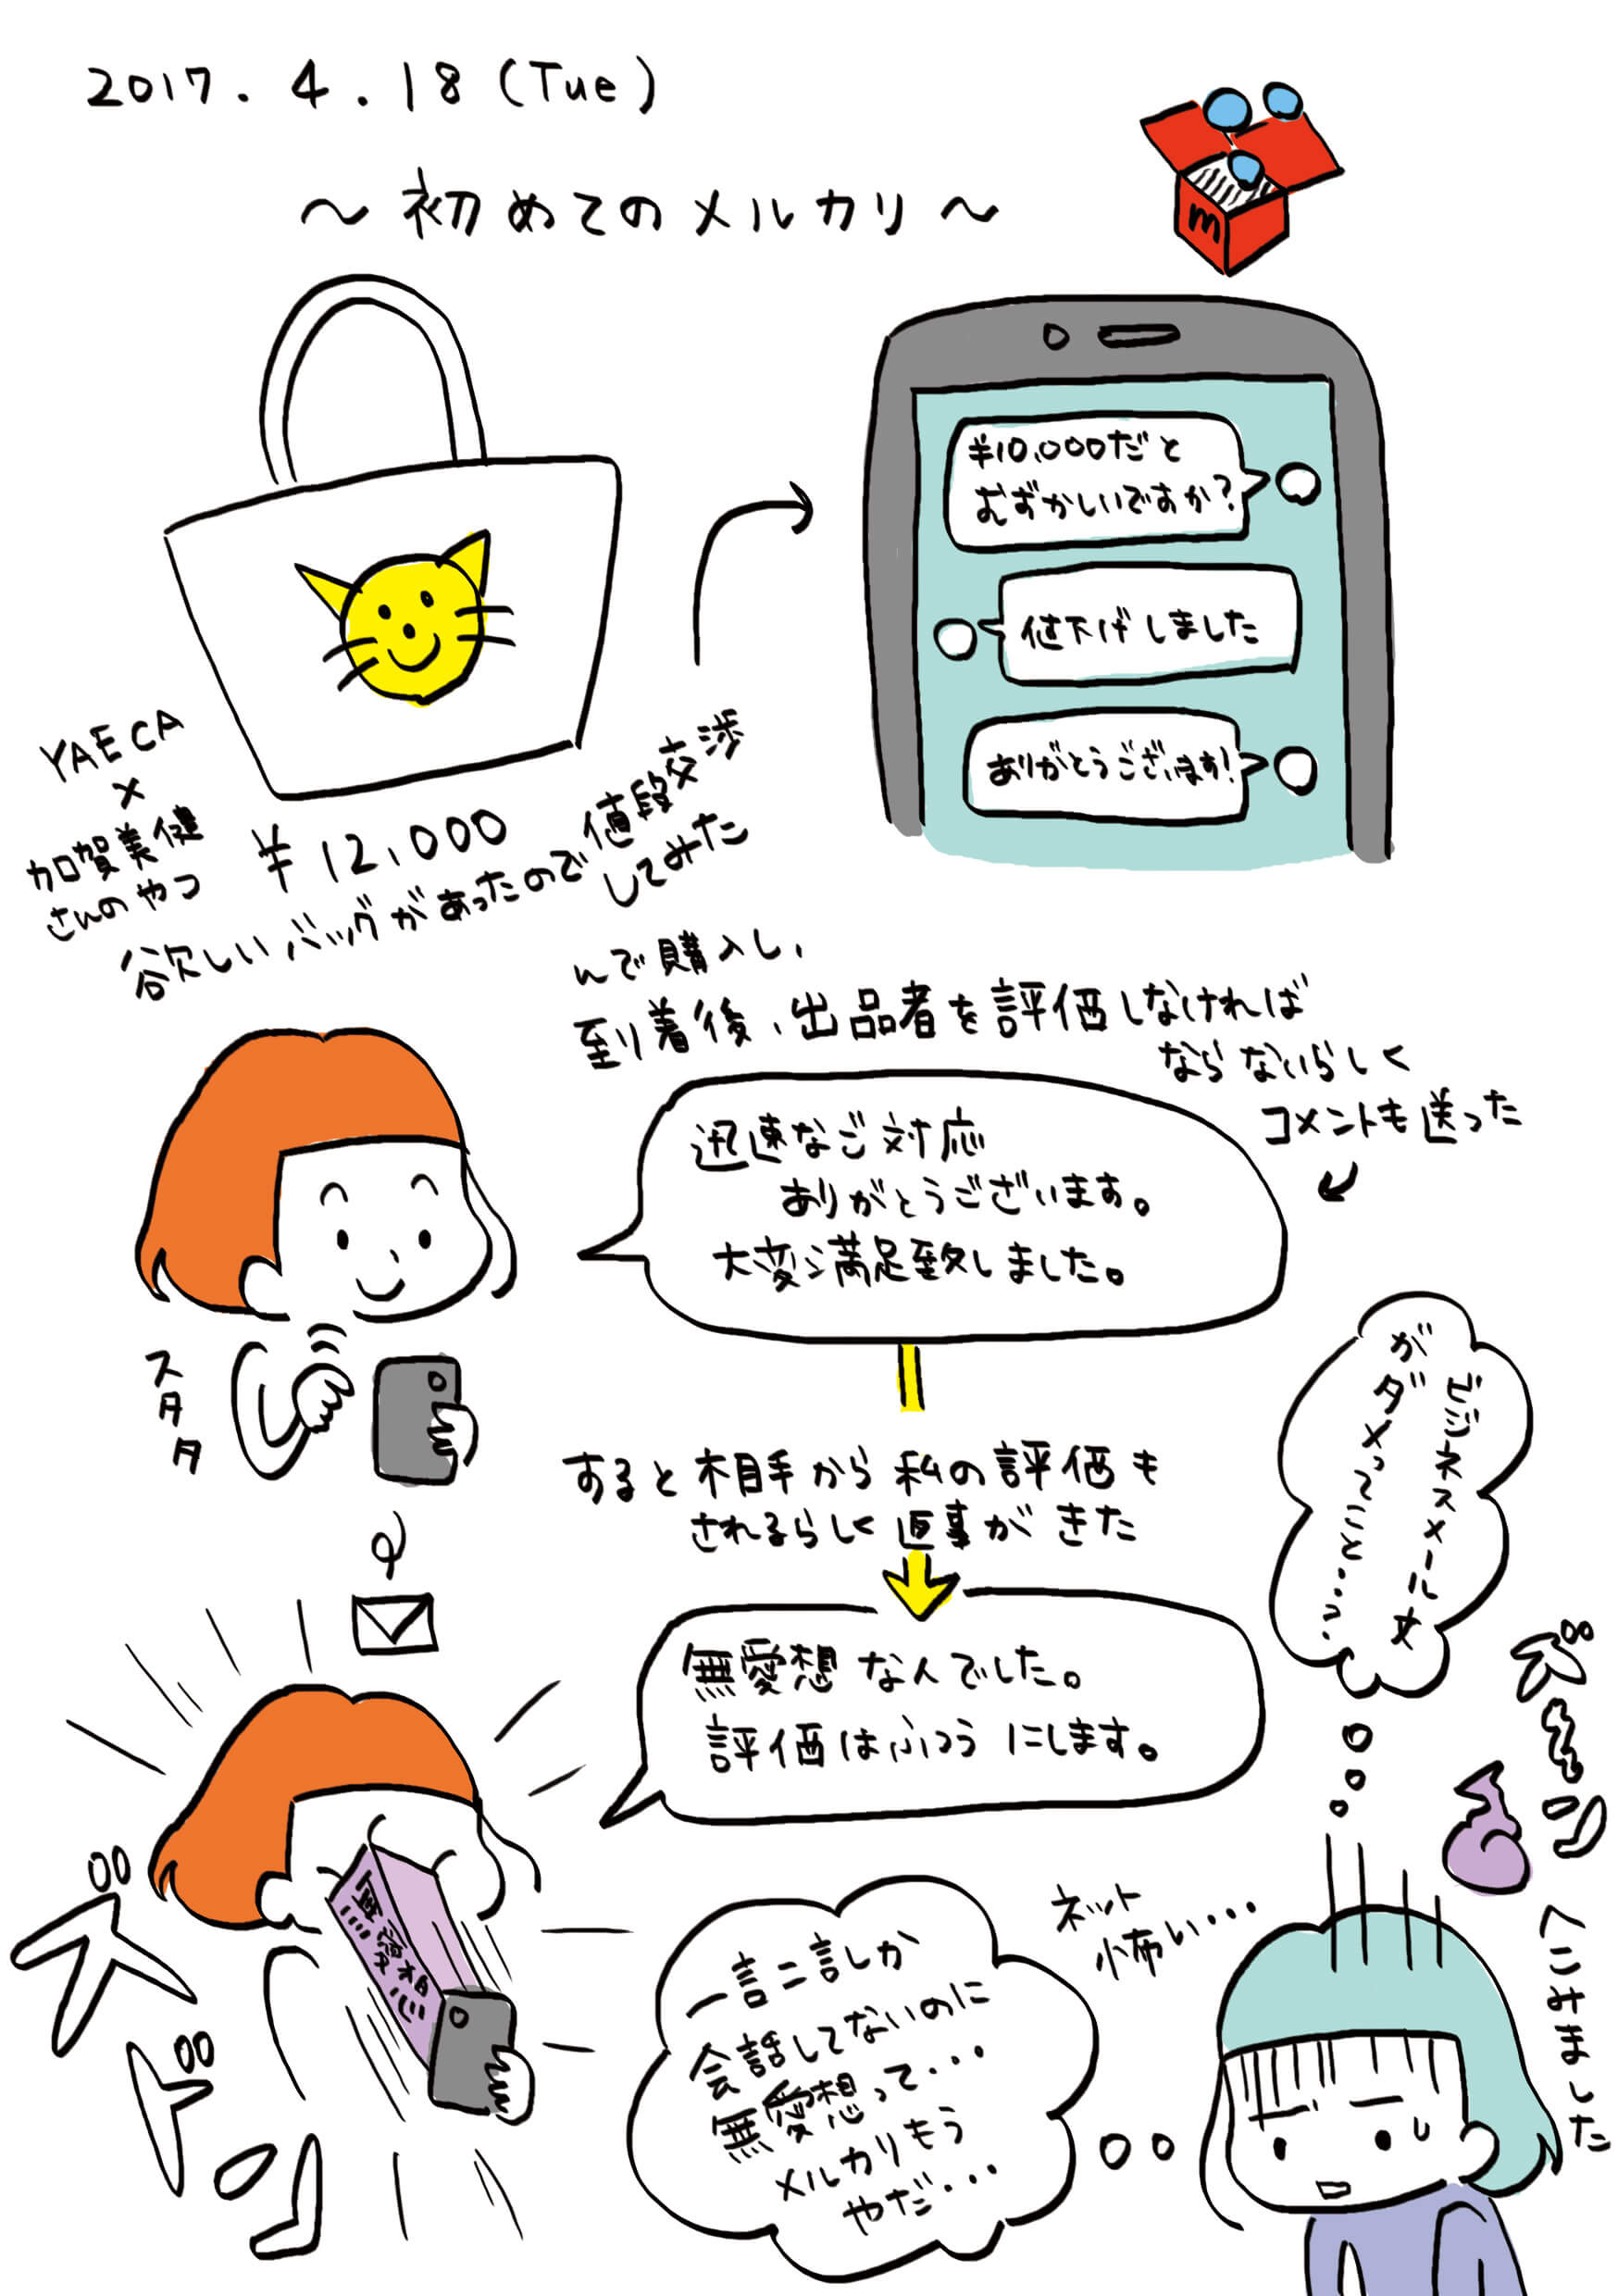 2017.4.18(Tue)
～初めてのメルカリ～
m
YAECA
×
加賀美健
さんのやつ
¥12,000
欲しいバッグがあったので値段交渉
してみた
¥10,000だと
むずかしいですか?
値下げしました
ありがとうございます!
んで購入し、
到着後、出品者を評価しなければ
ならないらしく
コメントも送った
迅速なご対応
ありがとうございます。
大変満足致しました。
スタタ
すると相手から私の評価も
されるらしく返事がきた
無愛想な人でした。
評価はふつうにします。
無愛想
ズドーン
一言二言しか
会話してないのに
無愛想って...
メルカリもう
やだ...
ネット
怖い...
ビジネスメール文
がダメってこと...?
ズーン
へこみました